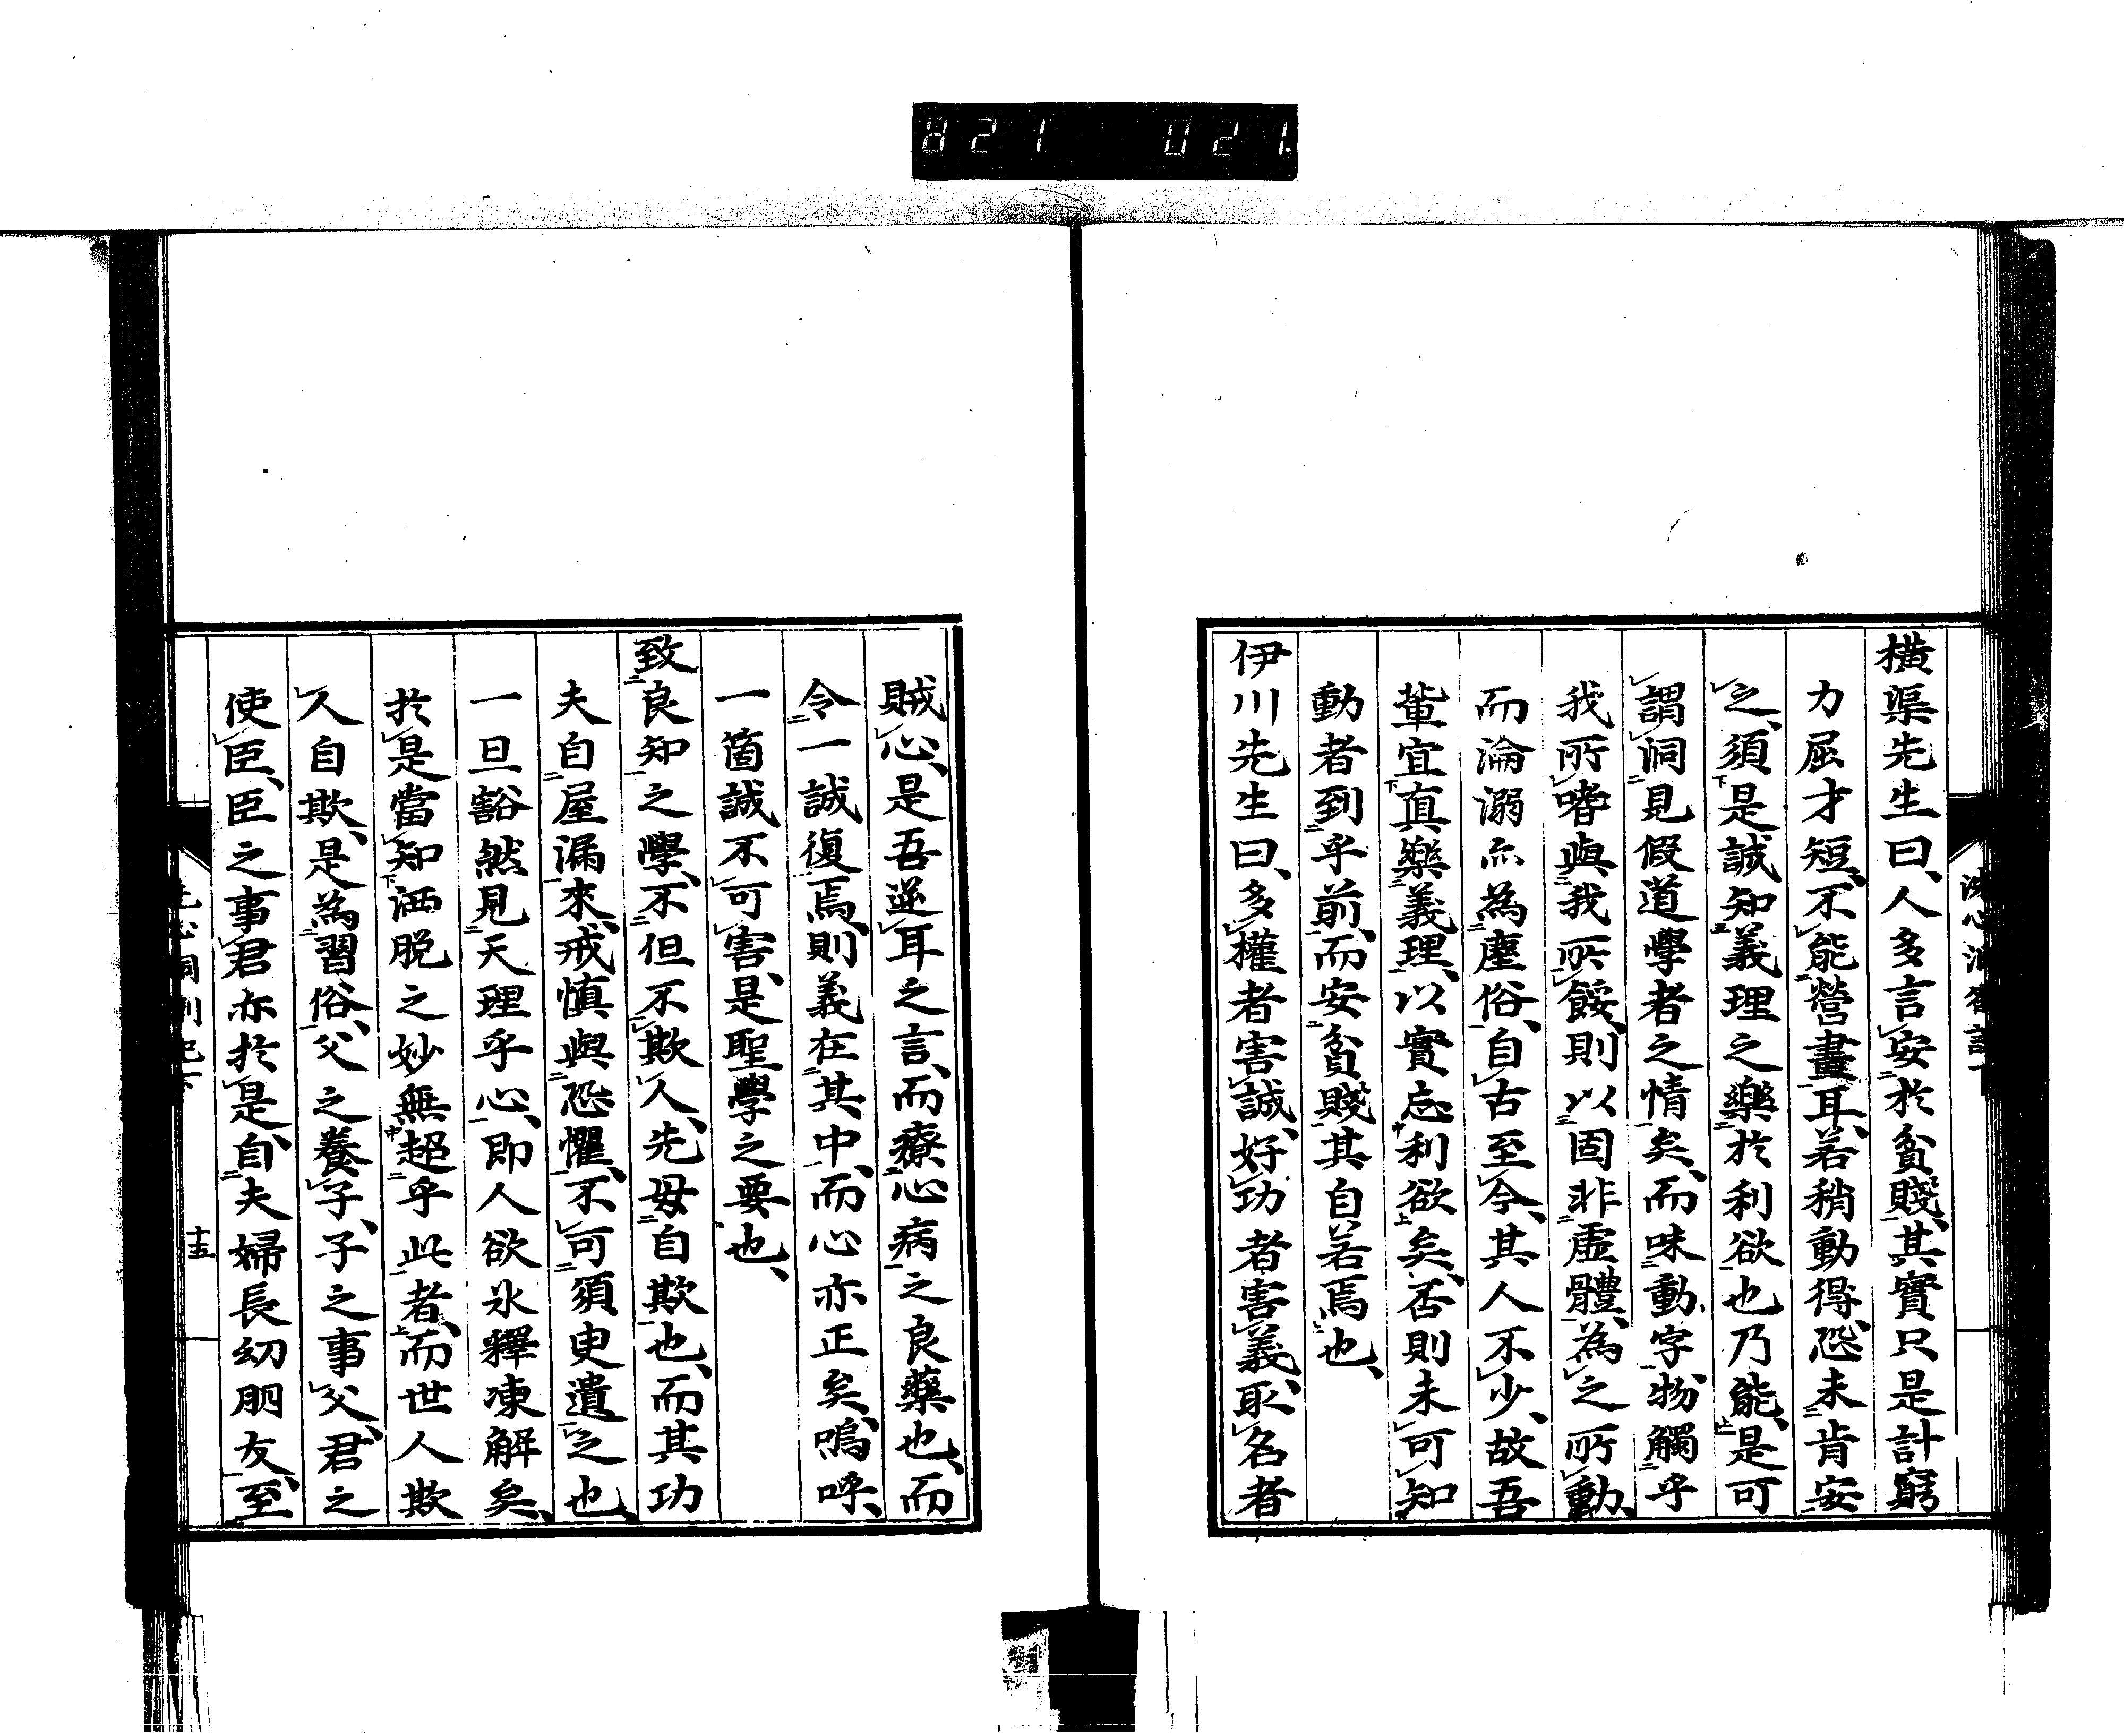 821 021.
橫渠先生曰、人多言安於貧賤、其實只是計窮
力屈才短、不能營畫耳、若稍動得、恐未肯安
之、須是誠知義理之樂於利欲也乃能、是可
謂洞見假道學者之情矣、而味動字、物觸乎
我所嗜與我所餒、則以固非虛體、為之所動、
而淪溺亦為塵俗、自古至今、其人不少、故吾
輩宜真樂義理、以實忘利欲矣、否則未可知
動者到乎前、而安貧賤其自若焉也、
伊川先生曰、多權者害誠、好功者害義、取名者
賊心、是吾逆耳之言、而療心病之良藥也、而
令一誠復焉、則義在其中、而心亦正矣、嗚呼、
一箇誠不可害、是聖學之要也、
致良知之學、不但不欺人、先毋自欺也、而其功
夫自屋漏來、戒慎與恐懼、不可須臾遺之也、
一旦豁然見天理乎心、即人欲氷釋凍解矣、
於是當知洒脫之妙無超乎此者、而世人欺
人自欺、是為習俗、父之養子、子之事父、君之
使臣、臣之事君亦於是、自夫婦長幼朋友、至
十五